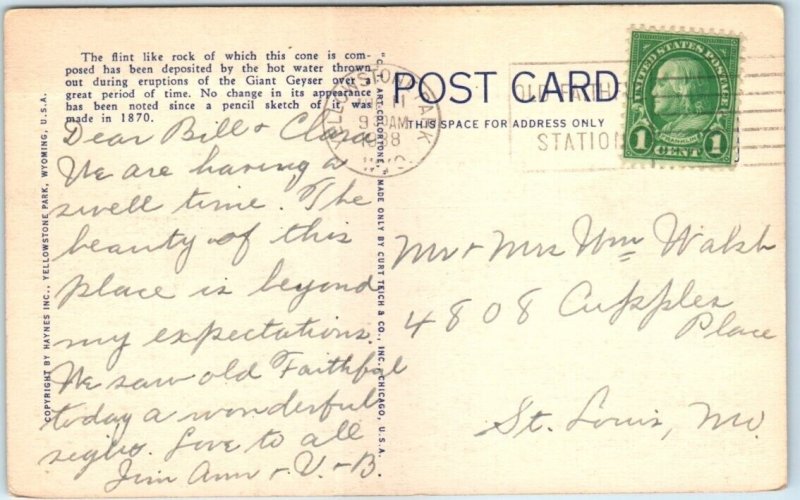 The flint like rock of which this cone is com-
posed has been deposited by the hot water thrown
out during eruptions of the Giant Geyser over a
great period of time. No change in its appearance
has been noted since a pencil sketch of it was
made in 1870.
Dear Bill + Clara
We are having a
swell time. The
beauty of this
place is beyond
my expectations.
We saw old Faithful
today a wonderful
sight. Love to all
Jim Ann + V + B.
COPYRIGHT BY HAYNES INC., YELLOWSTONE PARK, WYOMING, U.S.A.
"C.T. ART-COLORTONE," MADE ONLY BY CURT TEICH & CO., INC., CHICAGO, U.S.A.
POST CARD
THIS SPACE FOR ADDRESS ONLY
YELLOWSTONE PARK
11
9 30 AM
1938
WYO
OLD FAITH
STATION
UNITED STATES POSTAGE
FRANKLIN
1 CENT 1
Mr + Mrs Wm Walsh
4808 Cupples
Place
St. Louis, Mo.